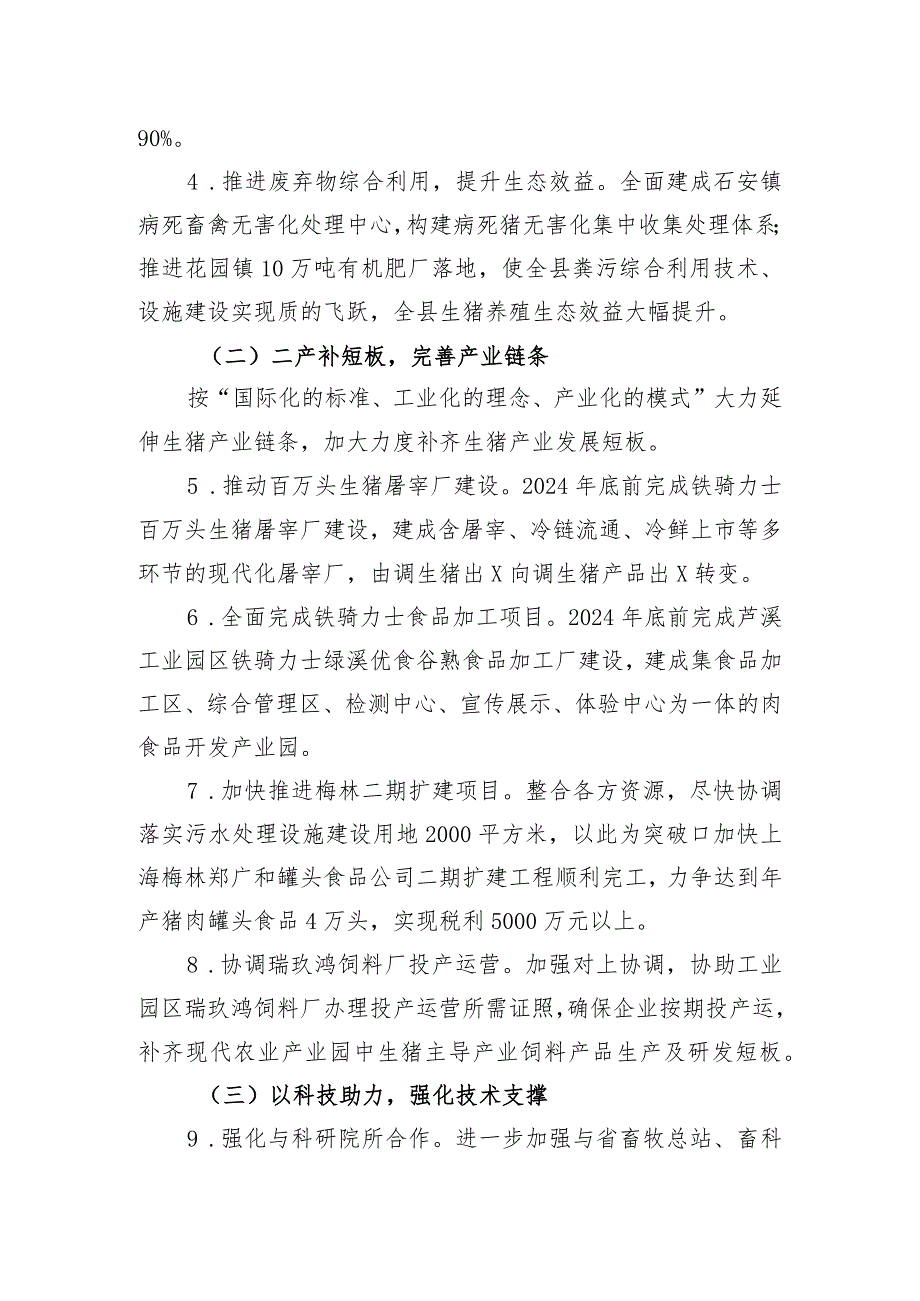 90%。
4.推进废弃物综合利用，提升生态效益。全面建成石安镇
病死畜禽无害化处理中心，构建病死猪无害化集中收集处理体系；
推进花园镇10万吨有机肥厂落地，使全县粪污综合利用技术、
设施建设实现质的飞跃，全县生猪养殖生态效益大幅提升。
（二）二产补短板，完善产业链条
按“国际化的标准、工业化的理念、产业化的模式”大力延
伸生猪产业链条，加大力度补齐生猪产业发展短板。
5.推动百万头生猪屠宰厂建设。2024年底前完成铁骑力士
百万头生猪屠宰厂建设，建成含屠宰、冷链流通、冷鲜上市等多
环节的现代化屠宰厂，由调生猪出X向调生猪产品出X转变。
6.全面完成铁骑力士食品加工项目。2024年底前完成芦溪
工业园区铁骑力士绿溪优食谷熟食品加工厂建设，建成集食品加
工区、综合管理区、检测中心、宣传展示、体验中心为一体的肉
食品开发产业园。
7.加快推进梅林二期扩建项目。整合各方资源，尽快协调
落实污水处理设施建设用地2000平方米，以此为突破口加快上
海梅林郑广和罐头食品公司二期扩建工程顺利完工，力争达到年
产猪肉罐头食品4万头，实现税利5000万元以上。
8.协调瑞玖鸿饲料厂投产运营。加强对上协调，协助工业
园区瑞玖鸿饲料厂办理投产运营所需证照，确保企业按期投产运，
补齐现代农业产业园中生猪主导产业饲料产品生产及研发短板。
（三）以科技助力，强化技术支撑
9.强化与科研院所合作。进一步加强与省畜牧总站、畜科